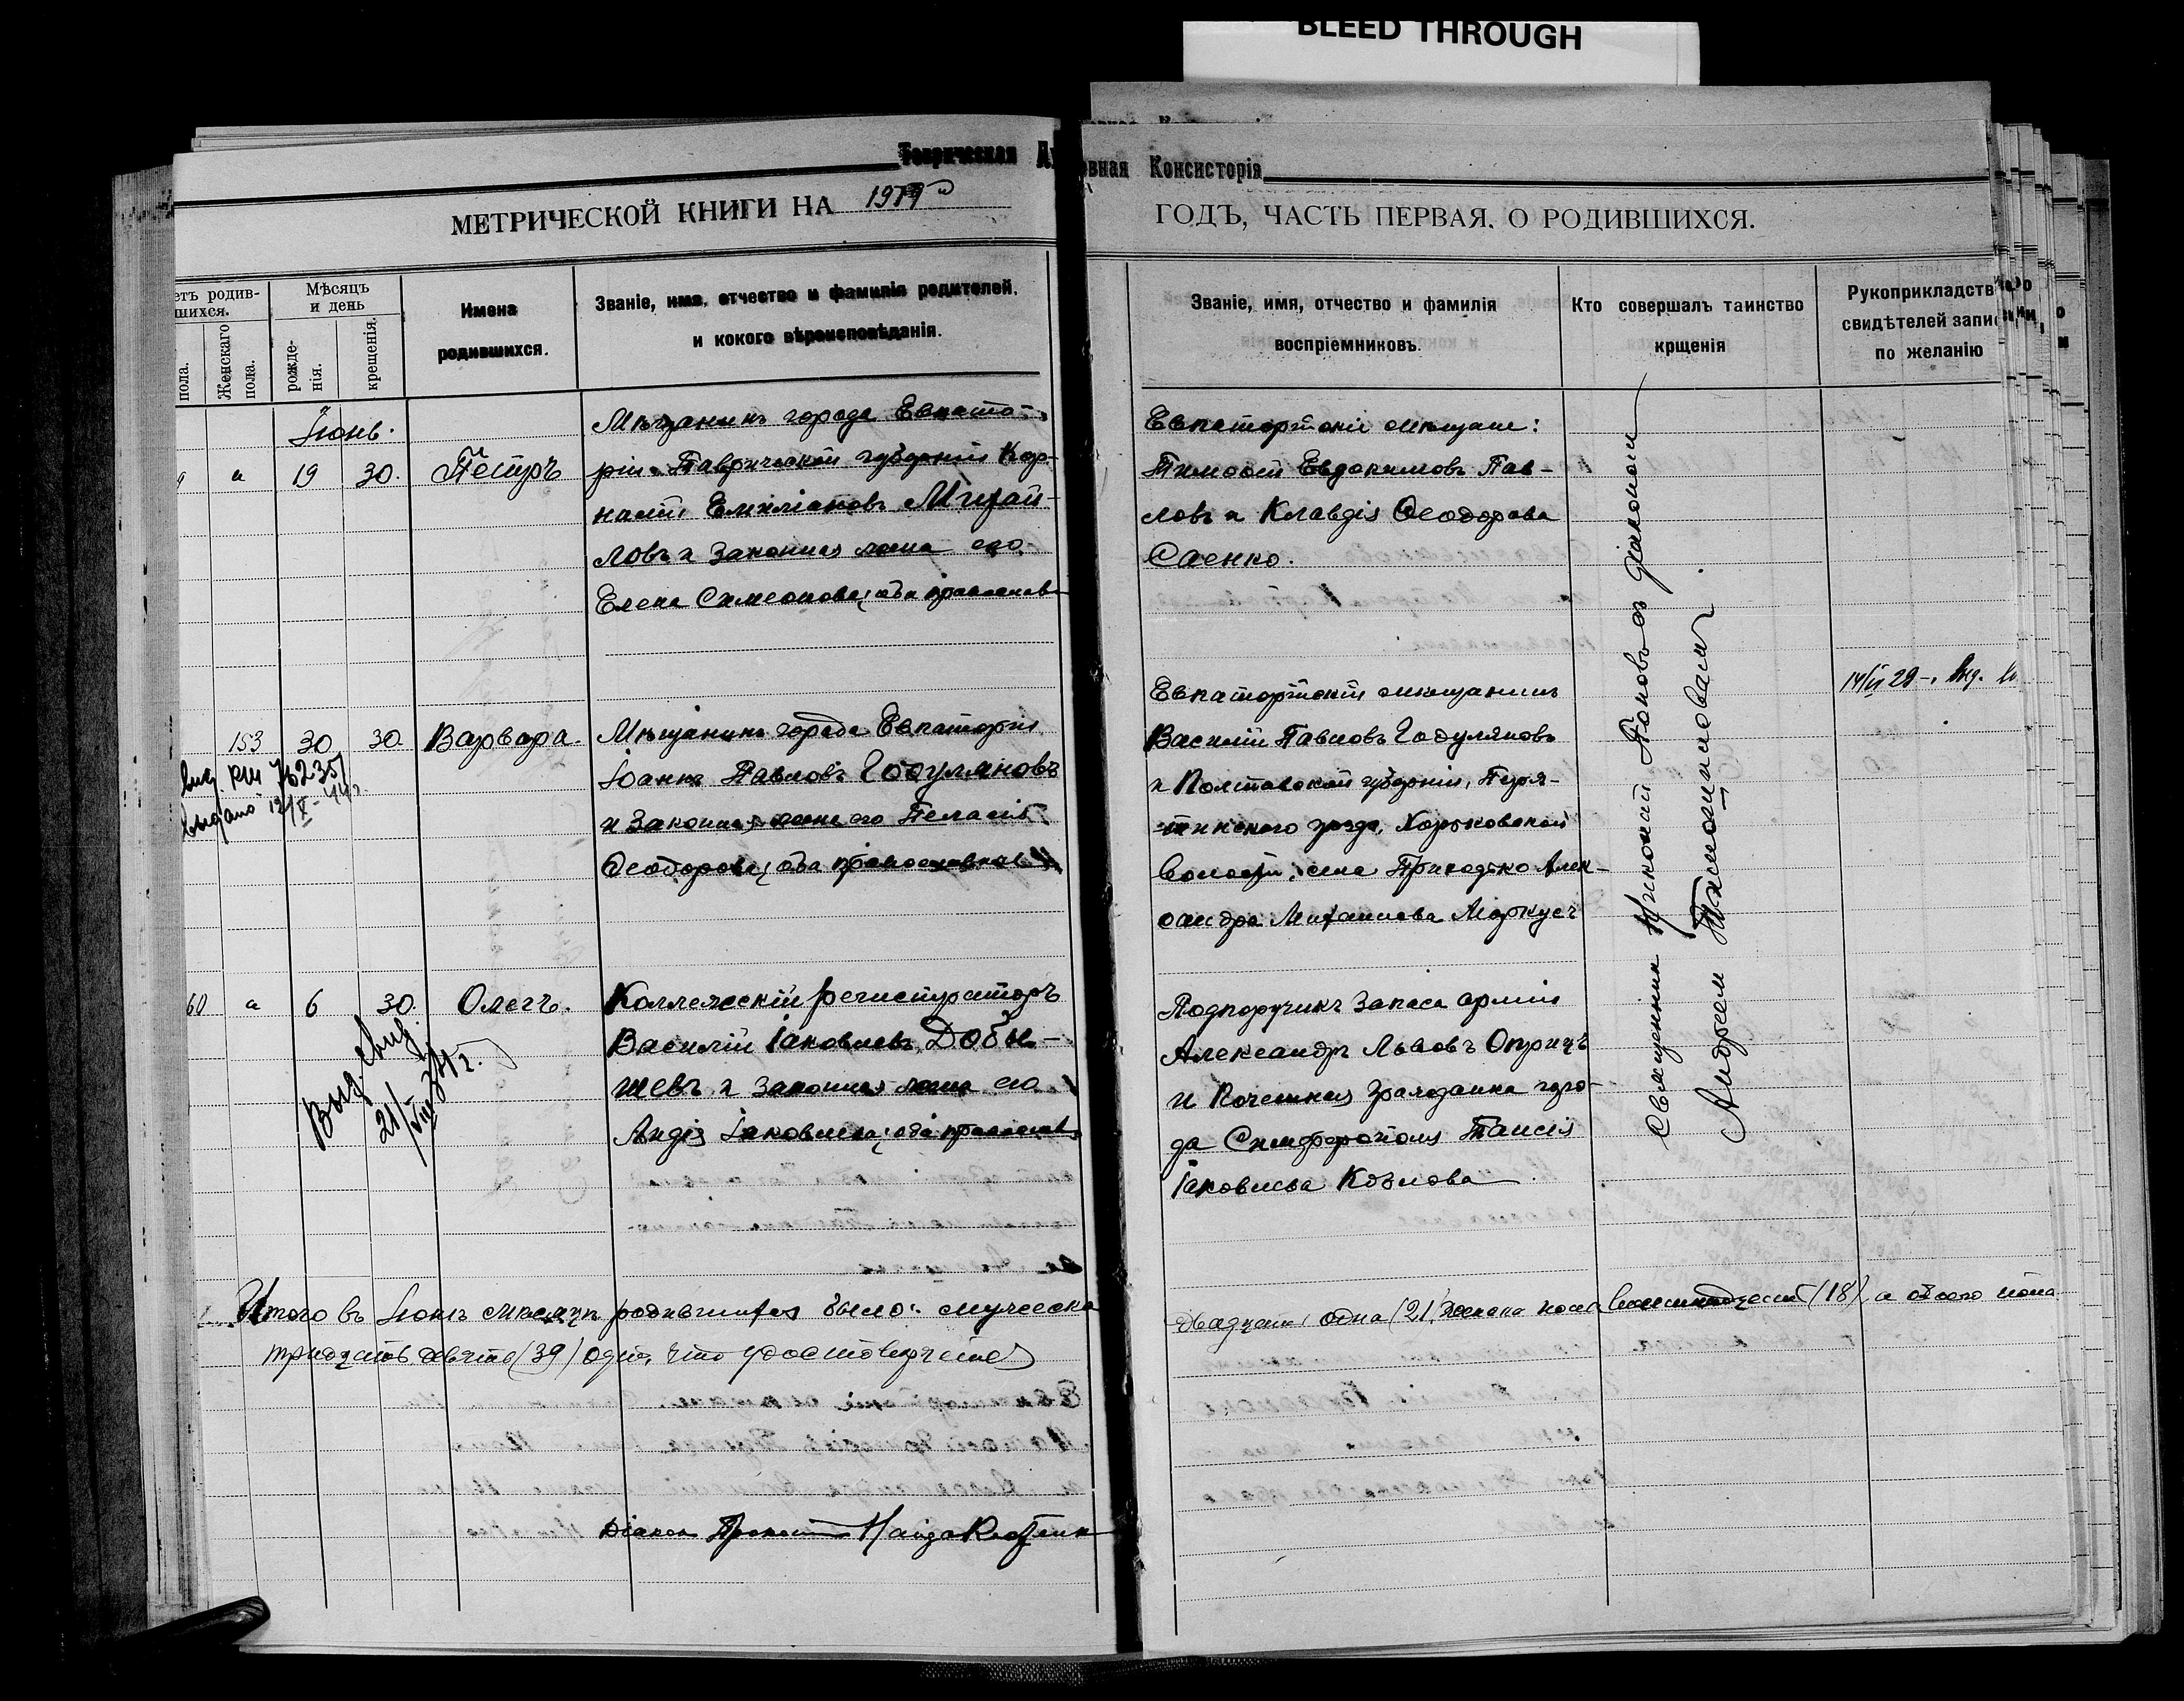 BLEED THROUGH
Таврическая Ду
овная Консисторія
МЕТРИЧЕСКОЙ КНИГИ НА 19
ГОДЪ, ЧАСТЬ ПЕРВАЯ. О РОДИВШИХСЯ.
етъ родив-
шихся.
пола.
Женскаго
пола.
Мѣсяцъ
и день
рожде-
нія.
крещенія.
Имена
родившихся.
Званіе, имя, отчество и фамилія родителей,
и кокого вѣроисповѣданія.
Званіе, имя, отчество и фамилія
воспріемниковъ.
Кто совершалъ таинство
крщенія
Рукоприкладств
свидѣтелей запис
по желанію
Іюнь.
19 30. Петръ
Мѣщанинъ города Евпато-
ріи Таврической губерніи Кор-
нилій Емиліановъ Михай-
ловъ и законная жена его
Елена Симеонова; оба православн
Евпаторійскіе мѣщане:
Тимоѳей Евдокимовъ Пав-
ловъ и Клавдія Ѳеодорова
Саенко.
153 30 30. Варвара.
Мѣщанинъ города Евпаторіи
Іоаннъ Павловъ Годуляновъ
и законная жена его Пелагія
Ѳеодорова; оба православные
Евпаторійскій мѣщанинъ
Василій Павловъ Годуляновъ
и Полтавской губерніи, Пиря-
тинского уѣзда, Харьковской
волости, села Приходько Алек-
сандра Михаилова Маркусь
76235
выдано
60 6 30. Олегъ.
Коллежскій регистраторъ
Василій Іаковлевъ Добы-
шевъ и законная жена его
Лидія Іаковлева; оба православ
Подпоручикъ запаса арміи
Александръ Львовъ Оприцъ
и Почетная гражданка горо-
да Симферополя Таисія
Іаковлева Козлова
Выд. свид.
21/VIII
Священникъ Николай Поповъ съ діакономъ
Андреем
Итого въ Іюнѣ мѣсяцѣ родившихся было: мужеска
двадцать одна (21) женска пола восемнадцать (18), а обоего пола
тридцать девять (39) одн, что удостовѣряемъ